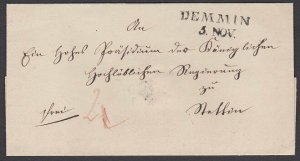 DEMMIN
5. NOV.
An
Ein Hohes Präsidium der Königlichen
Hochlöblichen Regierung
zu
Stettin